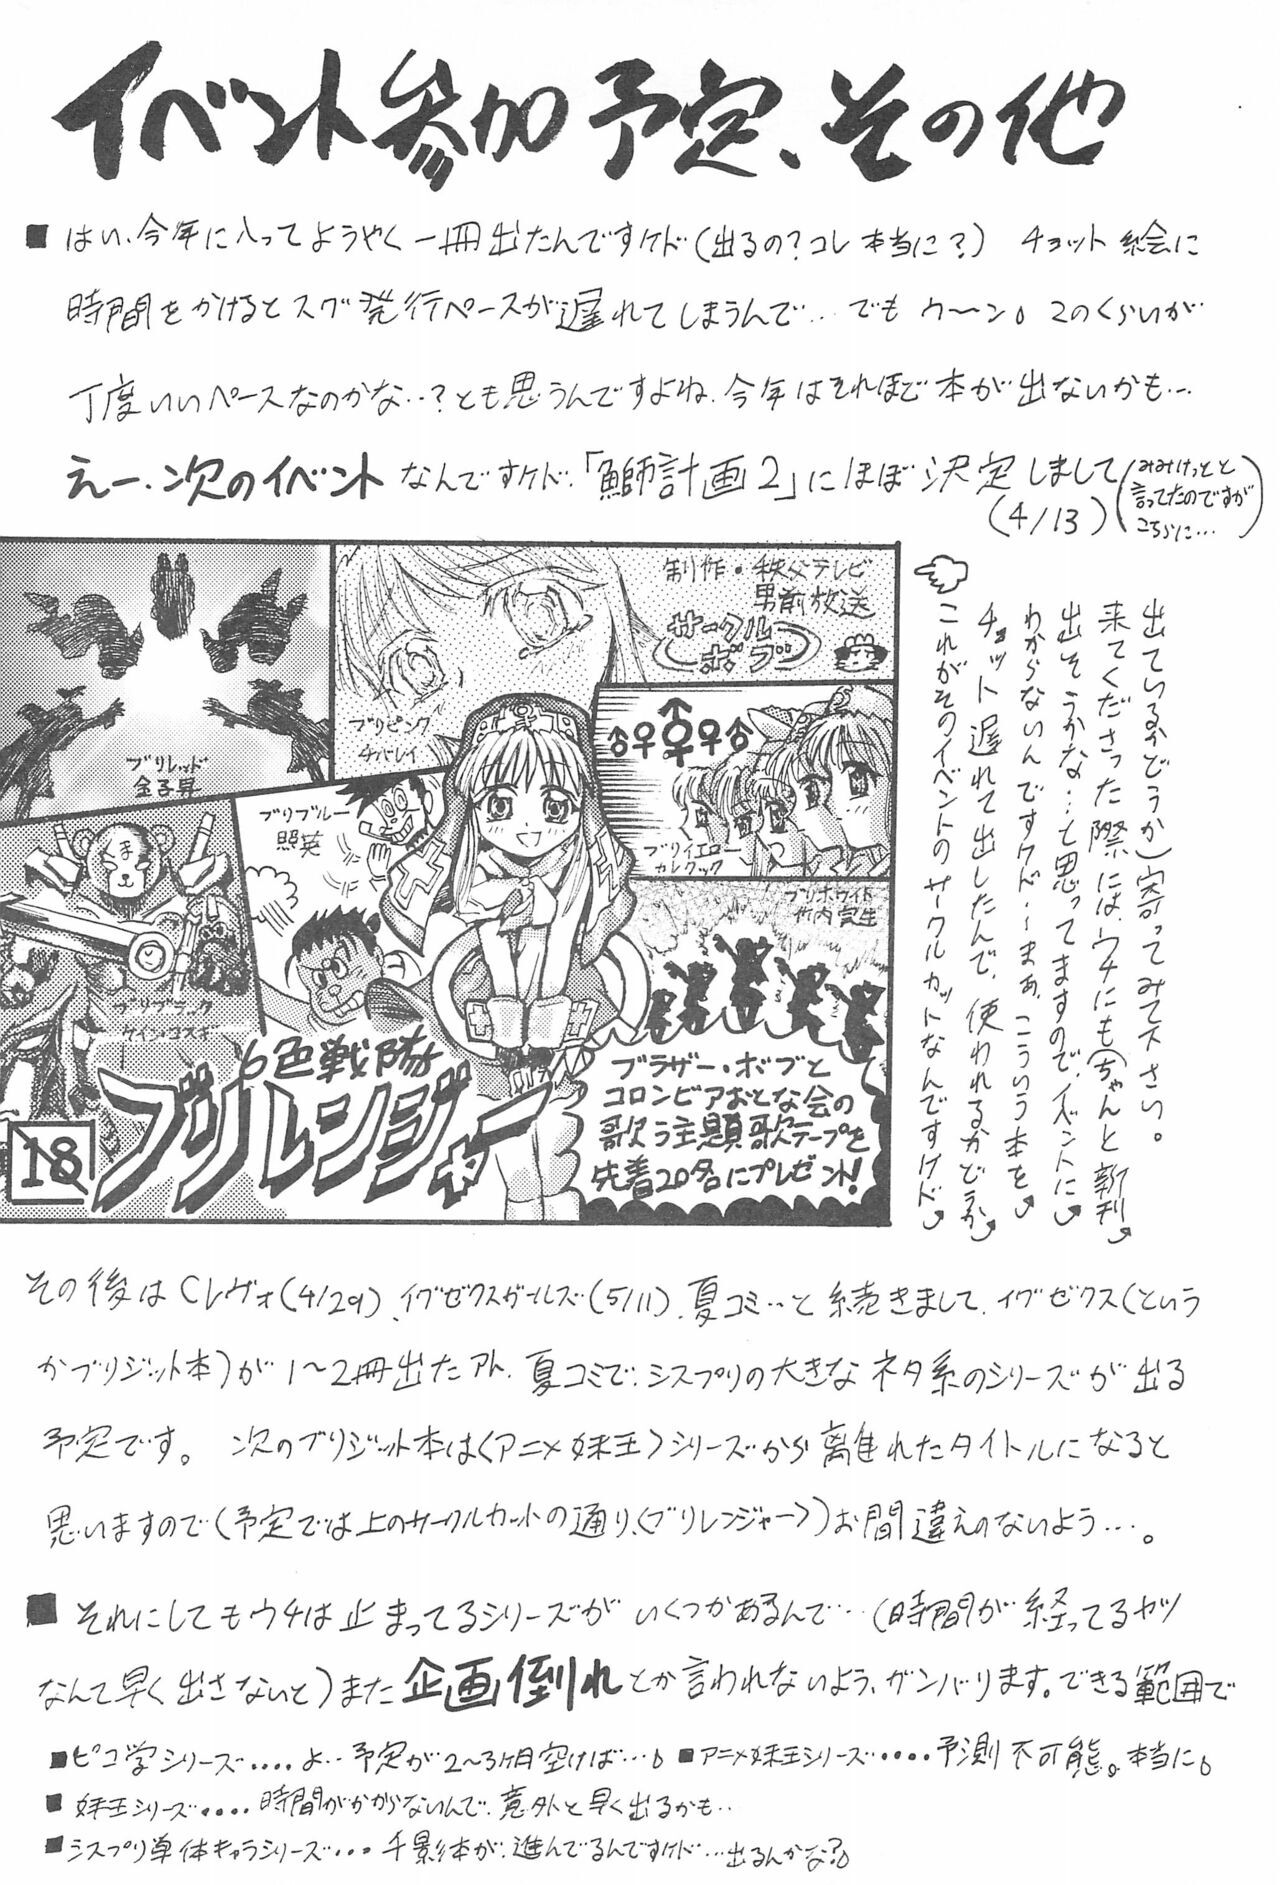 イベント参加予定、その他
■はい、今年に入ってようやく一冊出たんですケド(出るの?コレ本当に?) チョット絵に
時間をかけるとスグ発行ペースが遅れてしまうんで…でもウ〜ン。2のくらいが
丁度いいペースなのかな…?とも思うんですよね、今年はそれほど本が出ないかも…
えー、次のイベントなんですケド、「鰤計画2」にほぼ決定しまして
(4/13)
(みみけっとと
言ってたのですが
こちらに…)
☜これがそのイベントのサークルカットなんですけド
チョット遅れて出したんで、使われるかどうか
わからないんですケド…まぁ、こういう本を
出そうかな…と思ってますので、イベントに
来てくださった際には、ウチにも(ちゃんと新刊
出ているかどうか)寄ってみて下さい。
制作・秩父テレビ
男前放送
サークル
ボブ
ブリレッド
金子昇
ブリピンク
チバレイ
ブリブルー
照英
ブリイエロー
カレクック
ブリホワイト
竹内実生
ブリブラック
ケイン・コスギ
6色戦隊
ブリレンジャー
18
ブラザー・ボブと
コロンビアおとな会の
歌う主題歌テープを
先着20名にプレゼント!
その後はCレヴォ(4/29)、イグゼクスガールズ(5/11)、夏コミ…と続きまして、イグゼクス(という
かブリジット本)が1〜2冊出たアト、夏コミで、シスプリの大きなネタ系のシリーズが出る
予定です。 次のブリジット本は〈アニメ妹王〉シリーズから離れたタイトルになると
思いますので(予定では上のサークルカットの通り、〈ブリレンジャー〉)お間違えのないよう…。
■それにしてもウチは止まってるシリーズがいくつかあるんで…(時間が経ってるヤツ
なんて早く出さないと)また企画倒れとか言われないよう、ガンバリます。できる範囲で
■ピコ学シリーズ‥‥よ…予定が2〜3ヶ月空けば…。■アニメ妹王シリーズ‥‥予測不可能。本当に。
■妹王シリーズ‥‥時間がかからないんで、意外と早く出るかも…
■シスプリ単体キャラシリーズ…千影本が、進んでるんですケド…出るんかな?。